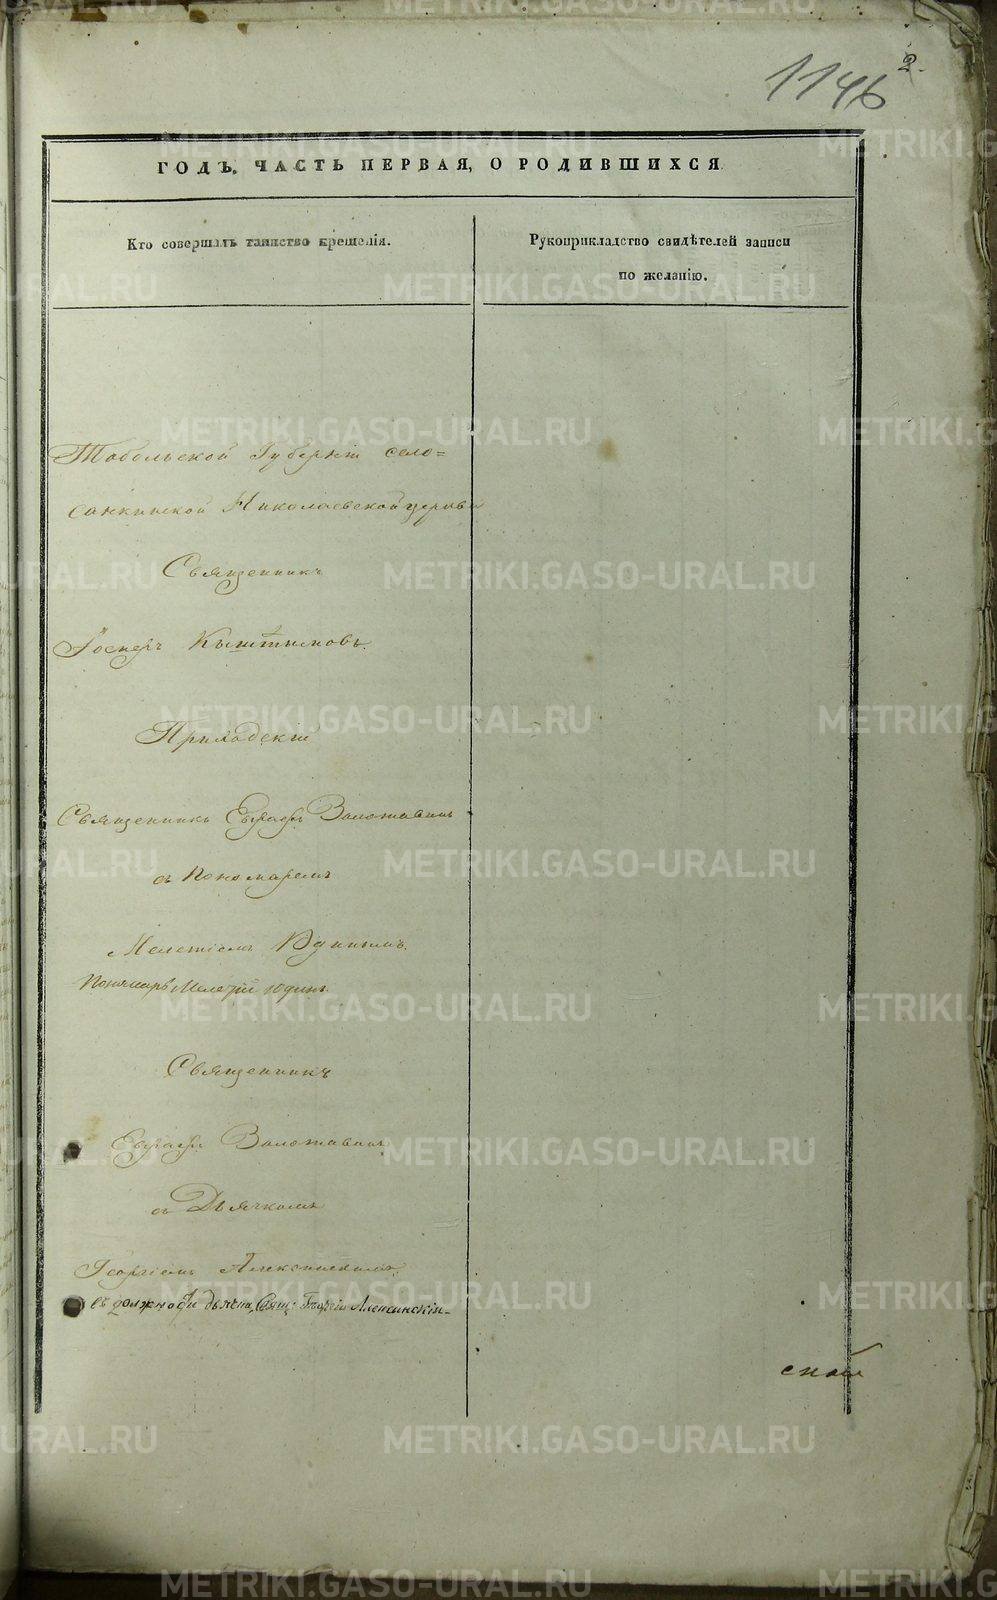 2.
1146
ГОДЪ. ЧАСТЬ ПЕРВАЯ, О РОДИВШИХСЯ
Кто совершалъ таинство крещенія.
Рукоприкладство свидѣтелей записи
по желанію.
Тобольской Губерніи село=
санкинской Николаевской церкви
Священникъ
Кыштымовъ.
Приходскій
Священникъ Евграфъ Золотавинъ
съ Пономаремъ
Мелетіемъ Юдинымъ.
Пономарь Мелетій Юдинъ
Священникъ
Евграфъ Золотавинъ
съ Дьячкомъ
Георгіемъ
въ должности Георгій
ской
METRIKI.GASO-URAL.RU